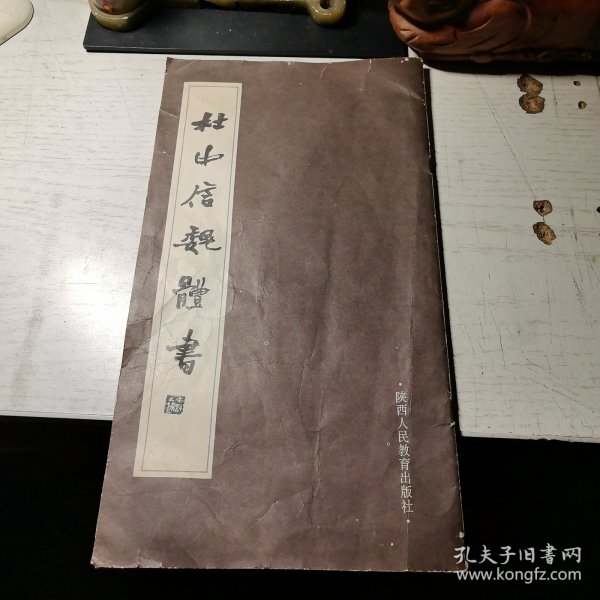 林中信魏體書
·陕西人民教育出版社·
孔夫子旧書网
www.kongfz.com